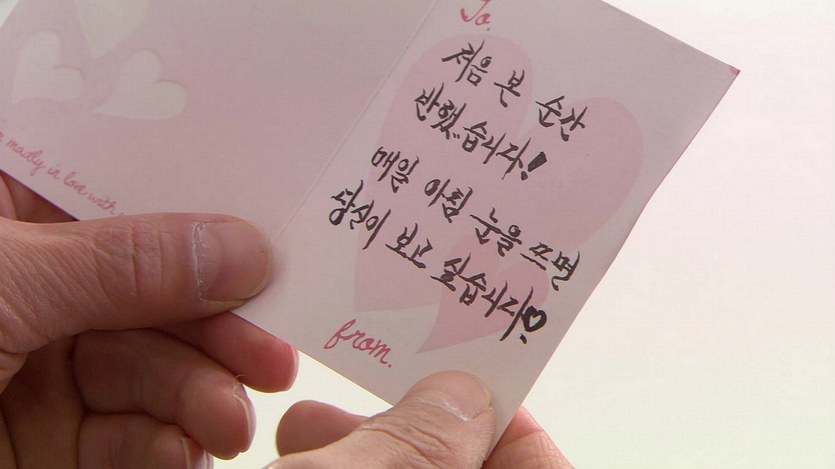 madly in love with
To.
처음 본 순간
반했습니다!
매일 아침 눈을 뜨면
당신이 보고 싶습니다!♡
from.